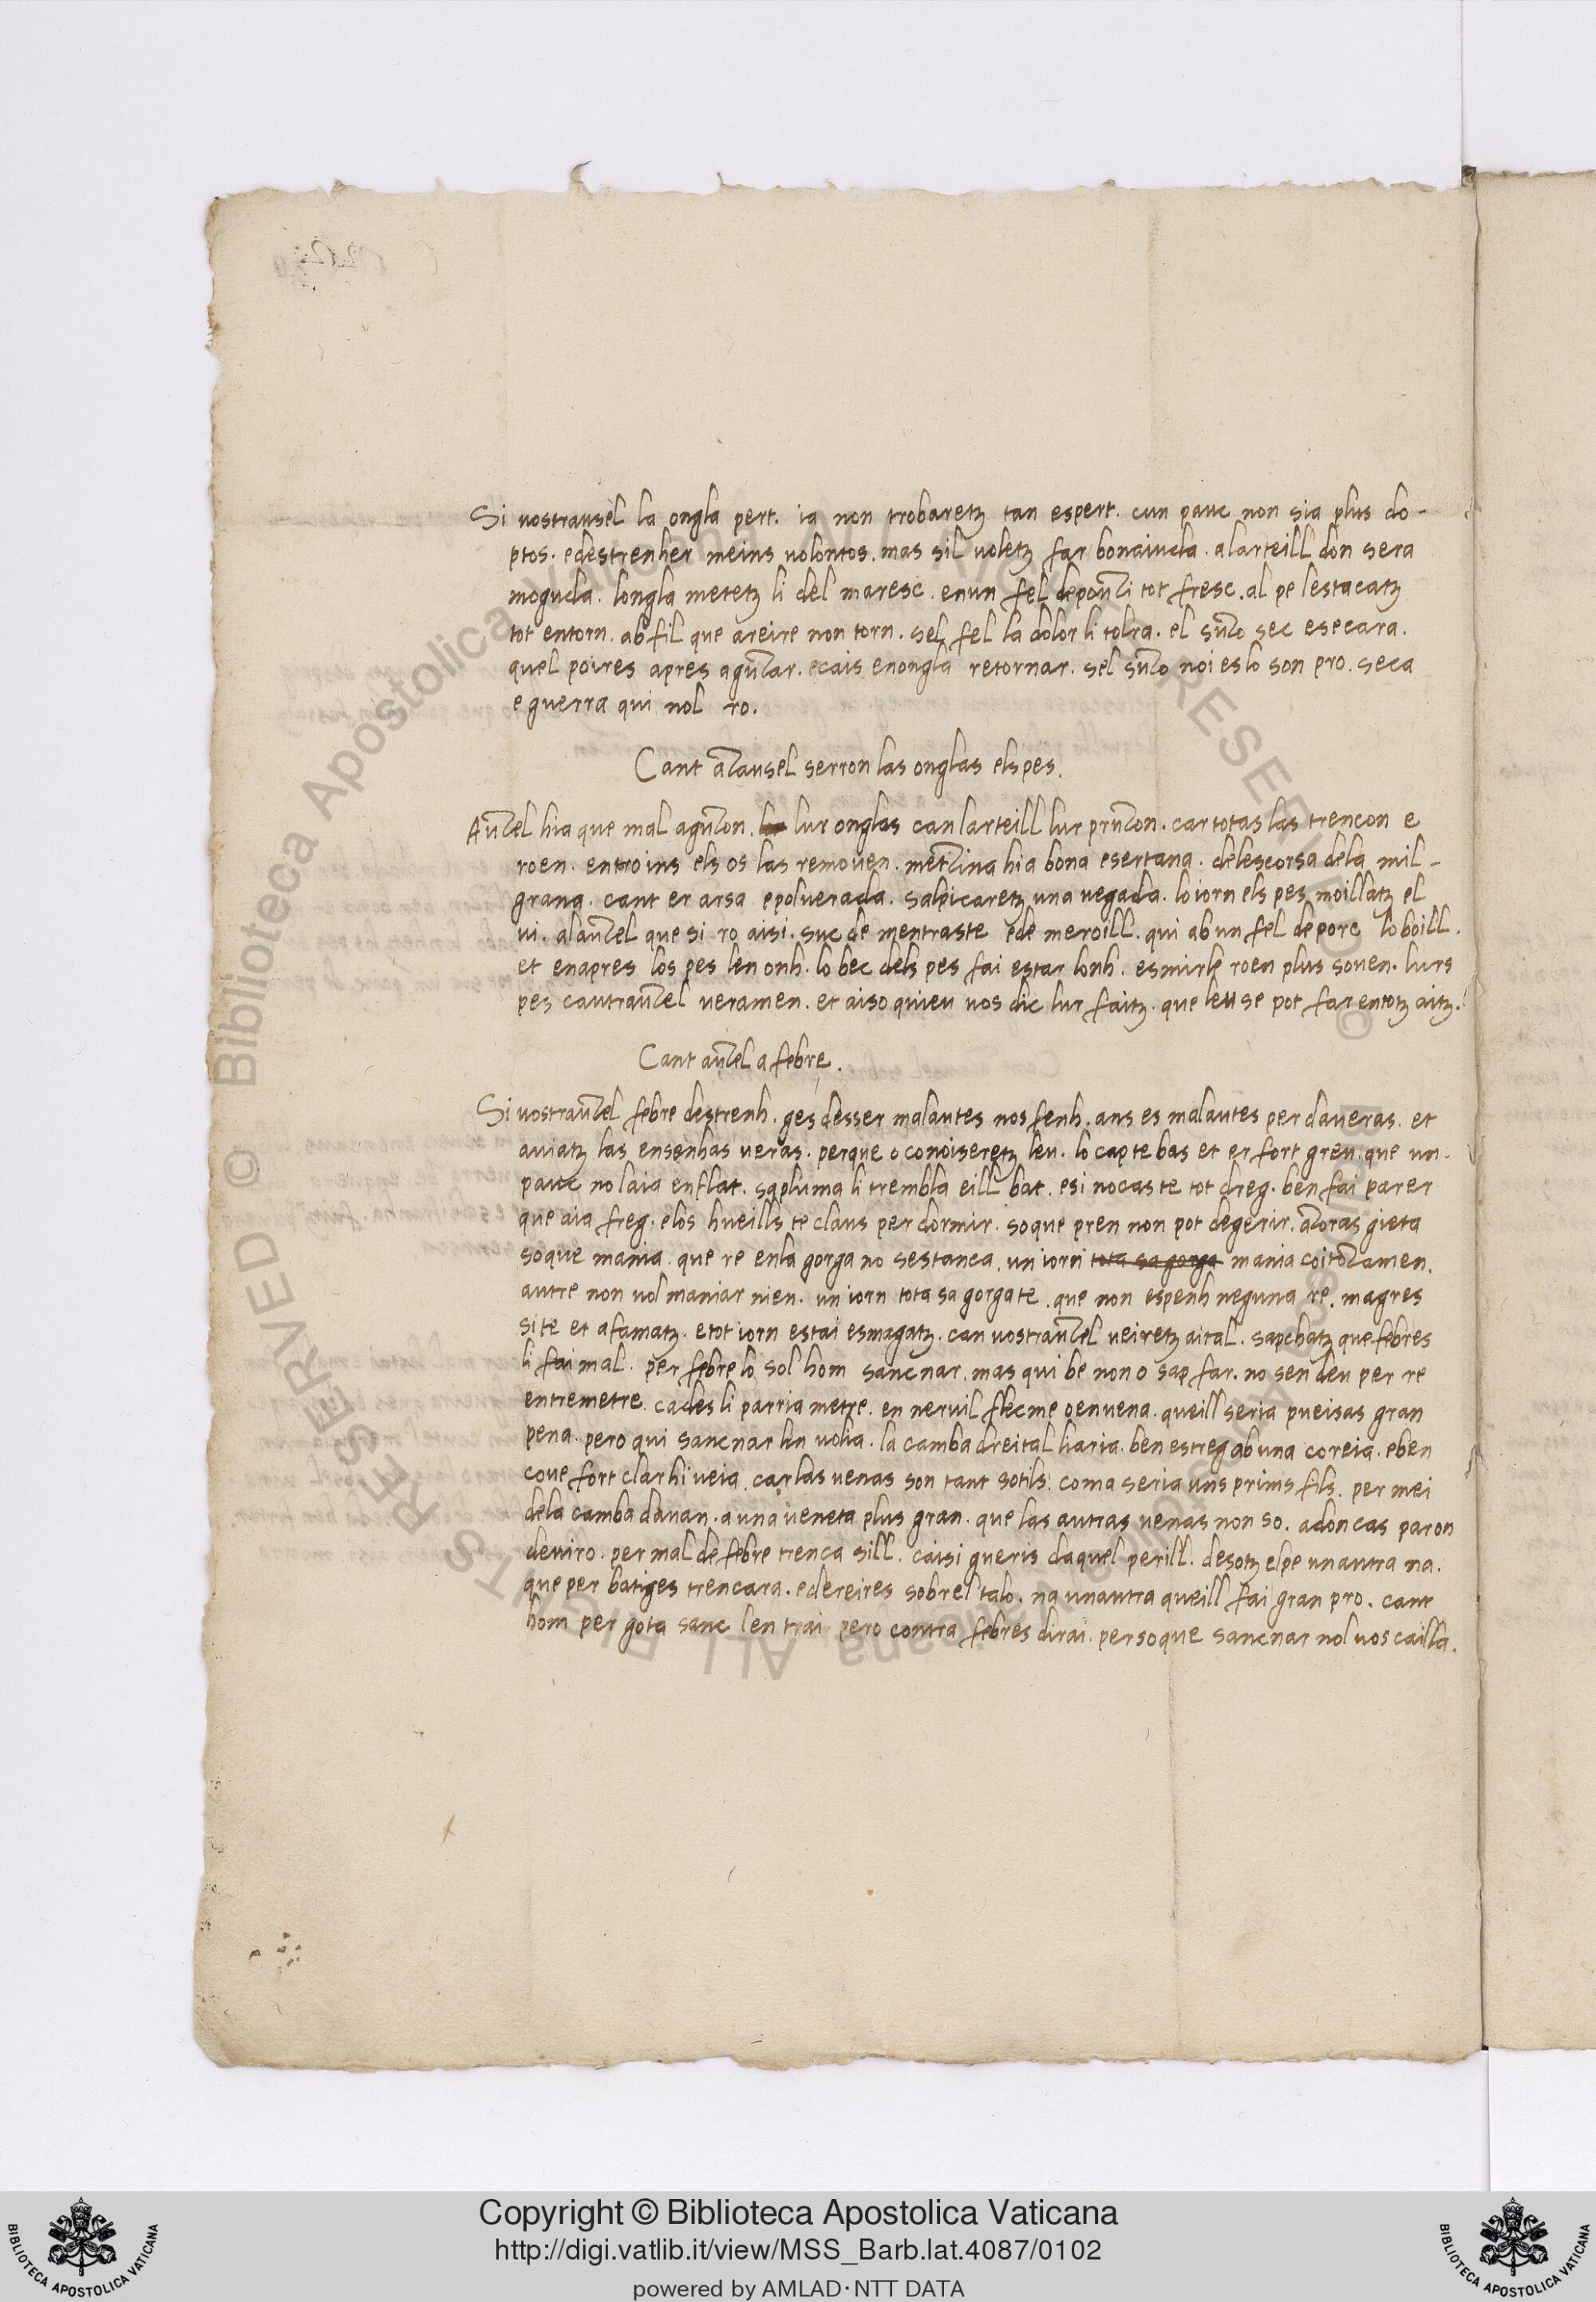 Si vostrausel la ongla pert. ia non trobaretz tan espert. cun pauc non sia plus do-
ptos. edestrenher meins volontos. mas sil voletz far bonaiuda. alarteill don sera
moguda. longla metetz li del maresc. enun fel deporci tot fresc. al pe lestacatz
tot entorn. ab fil que areire non torn. sel fel la dolor li tolra. el suzo sec esecara.
quel poires apres aguzar. ecais enongla retornar. sel suzo noi es lo son pro. seca
e guerra qui nol ro.
Cant azausel serron las onglas elspes.
Auzel hia que mal aguzon. lur onglas can larteill lur pruzon. car totas las trencon e
roen. entroins els os las removen. metzina hia bona esertana. delescorsa dela mil-
grana. cant er arsa epolverada. salpicaretz una vegada. lo iorn els pes moillatz el
vi. alauzel que si ro aisi. suc de mentraste ede meroill. qui ab un fel deporc lo boill.
et enapres los pes len onh. lo bec dels pes fai estar lonh. esmirle roen plus soven. lurs
pes cautrauzel veramen. et aiso quieu vos dic lur faitz. que leu se pot far entotz aitz.
Cant auzel a febre.
Si vostrauzel febre destrenh. ges desser malautes nos fenh. ans es malautes per daveras. et
auiatz las ensenhas veras. perque o conoiseretz leu. lo cap te bas et er fort greu. que un-
pauc no laia enflat. sapluma li trembla eill bat. esi nocas te tot dreg. ben fai parer
que aia freg. elos hueills te claus per dormir. so que pren non pot degerir. azoras gieta
so que mania. que re enla gorga no sestanca. un iorn tota sa gorga mania coitozamen.
autre non vol maniar nien. un iorn tota sa gorga te. que non espenh neguna re. magres
si te et afamatz. etot iorn estai esmagatz. can vostrauzel veiretz aital. sapchatz que febres
li fai mal. per febre lo sol hom sancnar. mas qui be non o sap far. no sen deu per re
entremetre. cades li parria metre. en nervil flecme oenvena. queill seria pueisas gran
pena. pero qui sancnar lin volia. la camba dreital liaria. ben estreg ab una coreia. eben
cove fort clar hi veia. car las venas son tant sotils. coma seria uns prims fils. per mei
dela camba davan. a una veneta plus gran. que las autras venas non so. adoncas paron
deviro. per mal de febre trenca sill. caisi gueris daquel perill. desotz elpe unautra na.
que per batiges trencara. edereires sobrel talo. na unautra queill fai gran pro. cant
hom per gota sanc len trai pero contra febres dirai. perso que sancnar nol vos cailla.
Copyright © Biblioteca Apostolica Vaticana
http://digi.vatlib.it/view/MSS_Barb.lat.4087/0102
powered by AMLAD·NTT DATA